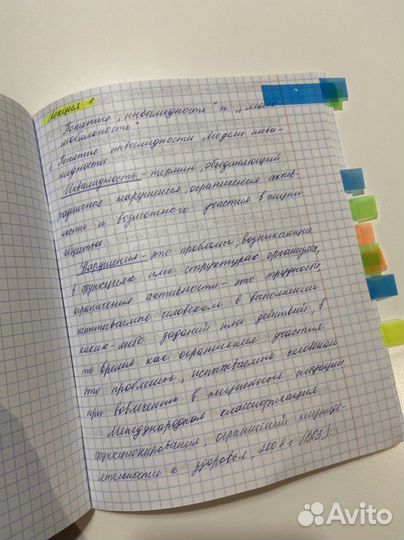 Лекция 1
Понятие „инвалидность" и „мало
мобильность"
1. Понятие инвалидности. Модели инва-
лидности.
Инвалидность - термин, объединяющий
различные нарушения, ограничения актив-
ности и возможного участия в жизни
общества
Нарушения - это проблемы, возникающие
в функциях или структурах организма,
ограничения активности - это трудности,
испытываемые человеком в выполнении
каких-либо заданий или действий, в
то время как ограничения участия
это проблемы, испытываемые человеком
при вовлечении в жизненные ситуации
Международная классификация
функционирования, ограничений жизнеде-
ятельности и здоровья, 200 г (ВОЗ)
Avito